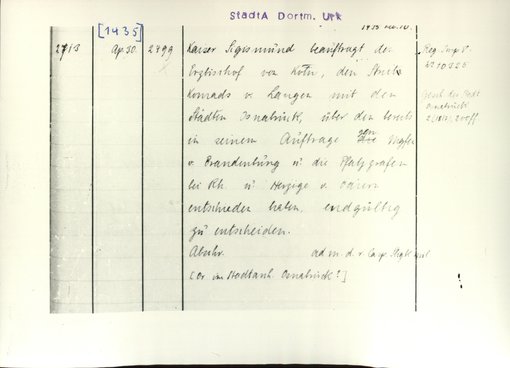 StadtA Dortm. Urk
[1435]
2713 Ap. 30. 2499 Kaiser Sigismund beauftragt den
Erzbischof von Köln, den Streit
Konrads v. Langen mit den
Städten Osnabrück, über den bereits
in seinem Auftrage
v. Brandenburg u die Pfalzgrafen
bei Rh. u Herzige v. Baiern
entschieden haben, endgültig
zu entscheiden.
Abschr. ad m. d. r. Casp.
[Or. im Stadtarch. Osnabrück?]
Reg. Imp. V.
Gesch. der Stadt
Osnabrück